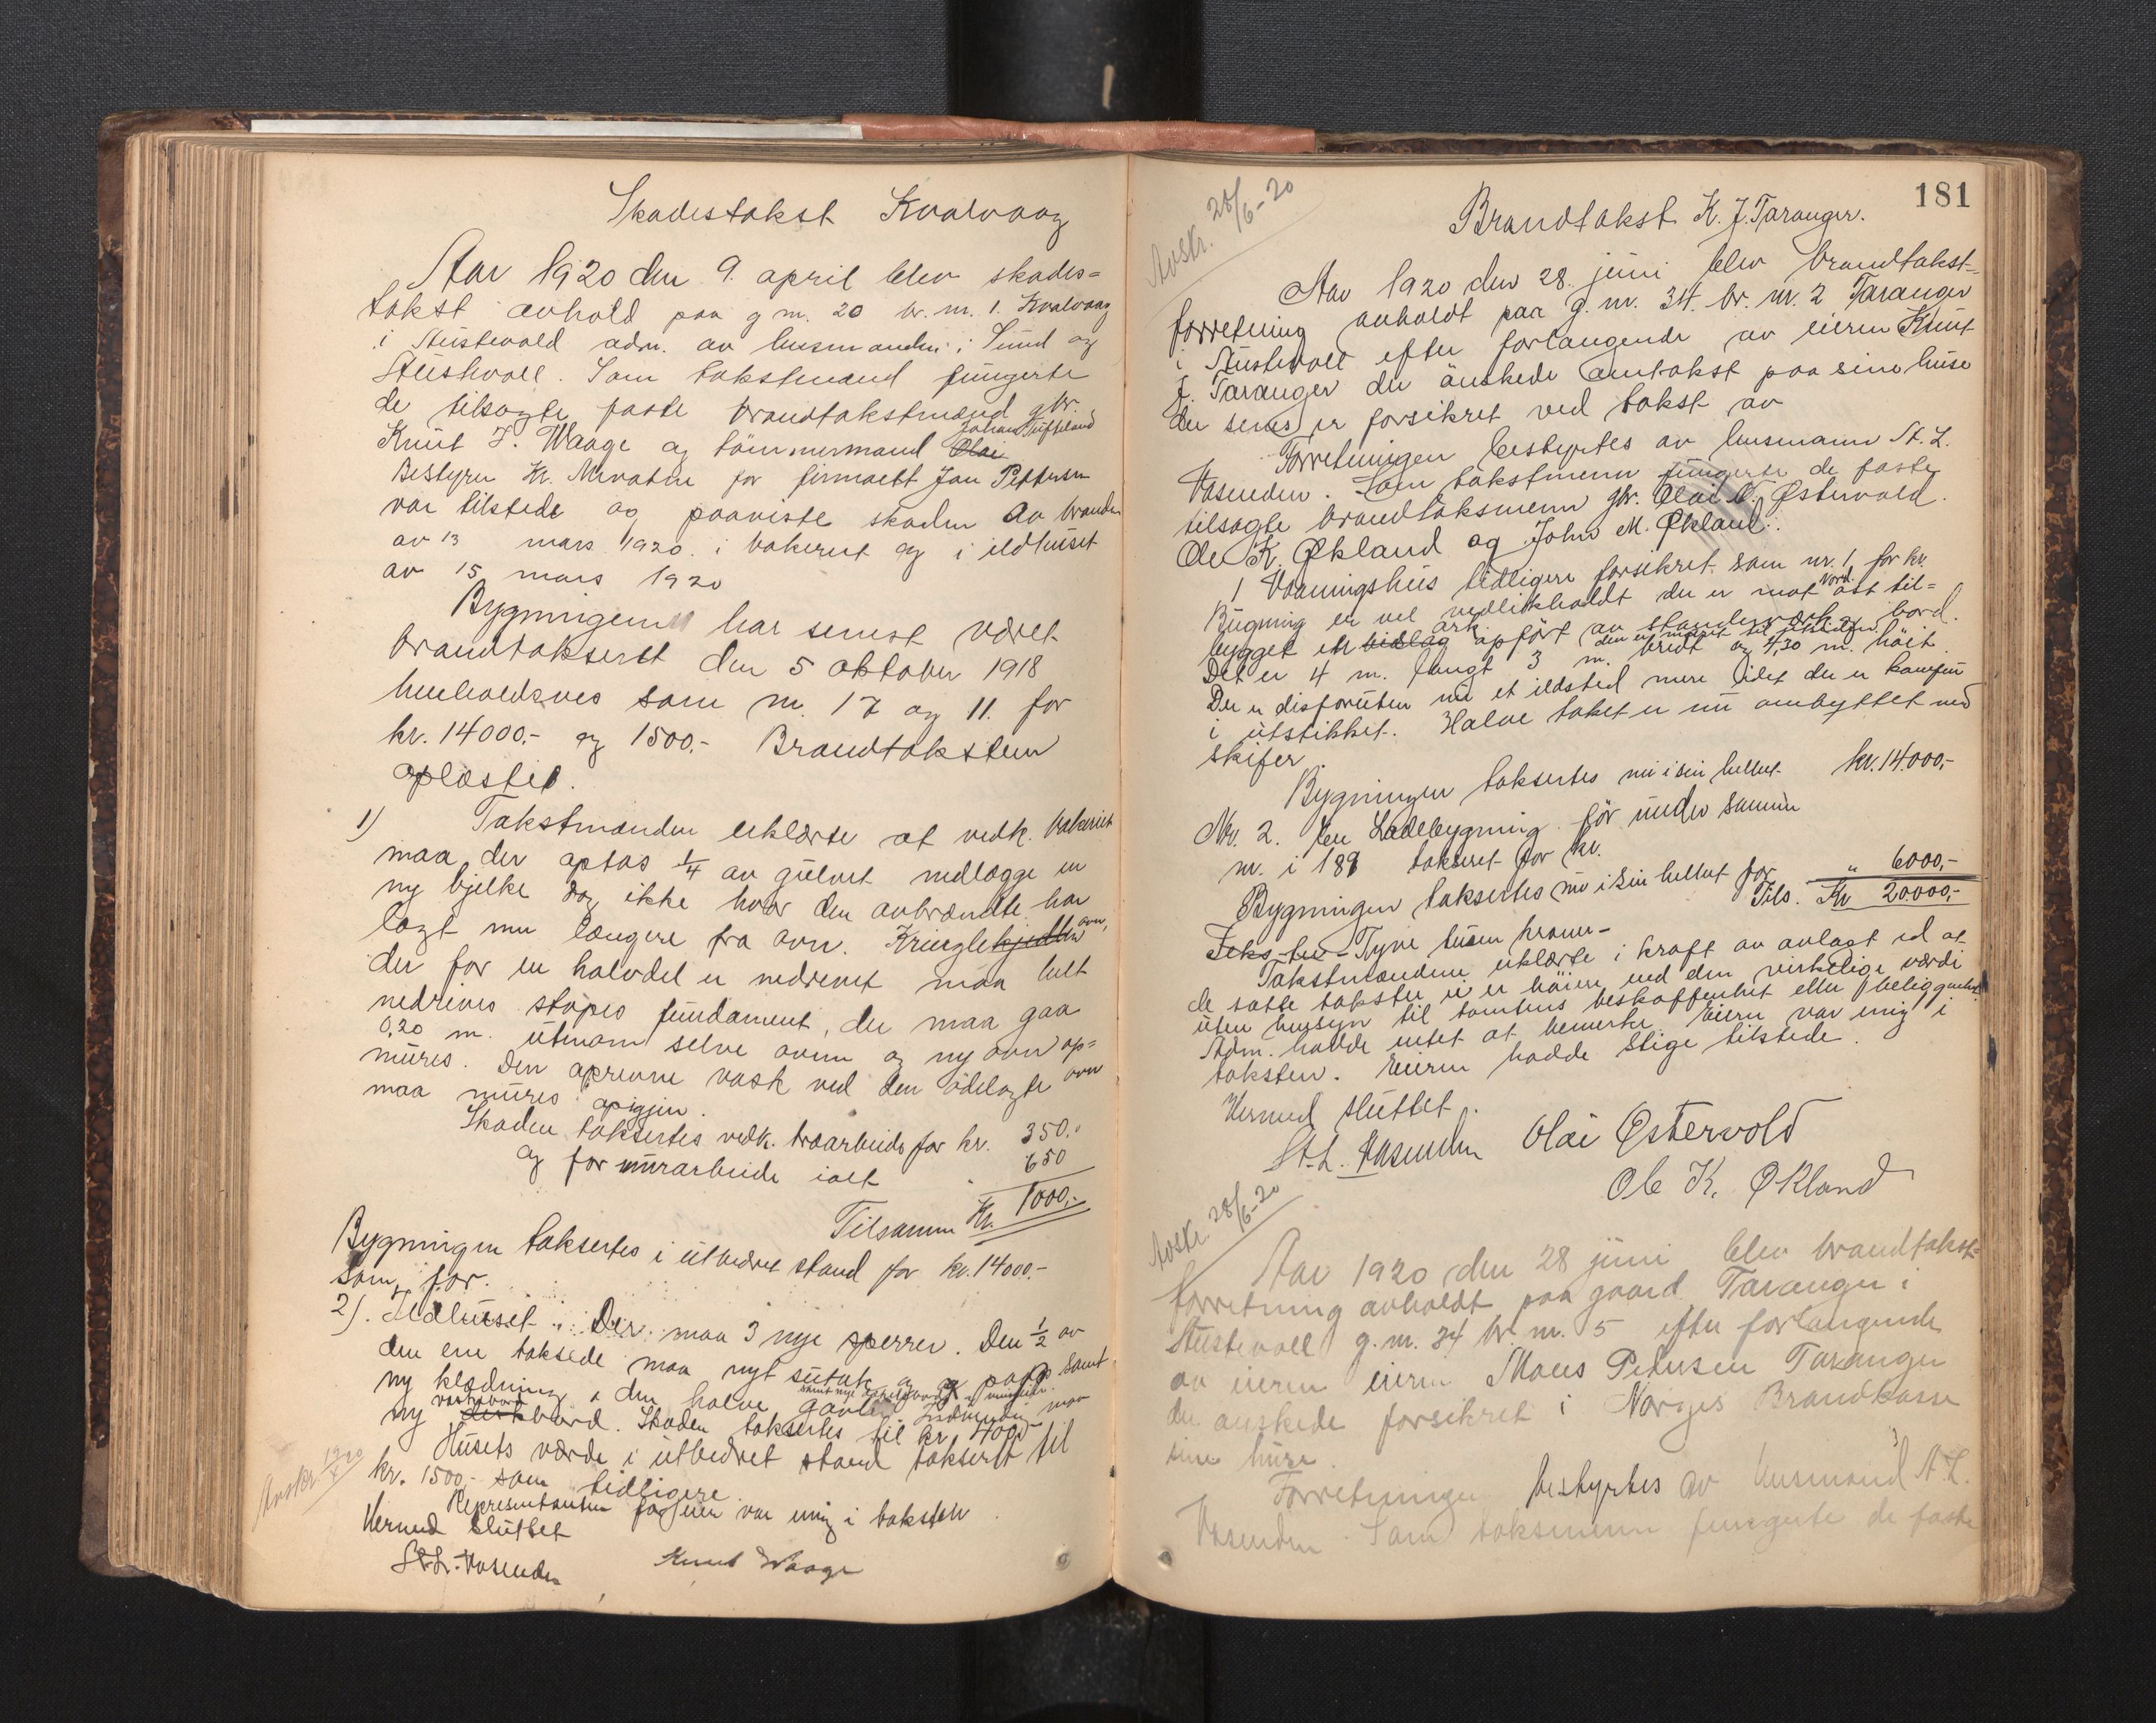 Skadestakst Kvalvaag
Aar 1920 den 9. april blev skades=
takst avhold paa g nr. 20 br. nr. 1. Kvalvaag
i Austevold adm. av lensmanden i Sund og
Austevoll. Som takstmænd fungerte
de tilsagte faste brandtakstmænd gbr.
Knut J. Waage og tömmermand Olai Johan Tufteland
Bestyrer Kr. for firmaet Jan Pettersen
var tilstede og paaviste skaden av branden
av 13 mars 1920 i bakeriet og i ildhuset
av 15 mars 1920
Bygningene har senest været
brandtaksert den 5 oktober 1918
henholdsvis som nr. 17 og 11. for
kr. 14000,- og 1500,- Brandtaksten
oplæstes.
1) Takstmænden erklærte at vedk. bakeriet
maa der optas 1/4 av gulvet nedlægge en
ny bjelke dog ikke hvor den avbrændte har
lagt men længere fra ovn. Kringlekjedelen ovn,
der for en halvdel er nedrevet maa helt
nedrives støpes fundament, der maa gaa
0,20 m. utenom selve ovnen og ny ovn op=
mures. Den oprevne vask ved den ödelagte ovn
maa mures opigjen.
Skaden taksertes vedk. træarbeide for kr. 350.-
og for murarbeide ialt " 650
Tilsamen Kr. 1000,-
Bygningen taksertes i utbedret stand for kr. 14000,-
som för.
2). Ildhuset: Der maa 3 nye sperrer. Den 1/2 av
den ene takside maa nyt sutak og papp samt
ny klædning i den halve gavle
ny bord. Skaden taksertes til kr. 400,-
Husets værde i utbedret stand taksert til
kr. 1500,- som tidligere.
Representanten for eier var enig i taksten.
Hermed sluttet
St. L. Vasenden Knut Waage
Avskr. 28/6-20
181
Brandtakst K. J. Taranger.
Aar 1920 den 28. juni blev brandtakst-
forretning avholdt paa g. nr. 34 br. nr. 2 Taranger
i Austevoll efter forlangende av eieren Knut
J. Taranger der önskede omtakst paa sine huse
der senest er forsikret ved takst av
Forretningen bestyrtes av lensmann St. L.
Vasenden. Som takstmenn fungerte de faste
tilsagte brandtaksmenn gbr. Olai N. Østervold.
Ole K. Økland og Johs M. Økland.
1 Vaaningshus tidligere forsikret som nr. 1. for kr.
Bygning er vel vedlikeholdt der er mot Nord öst til=
bygget et bislag ark opfört av stenderverk og bord.
Det er 4 m. langt 3 m. bredt og 4,30 m. höit.
Der er disforuten nu et ildsted mere idet der er kamfin
i utstikket. Halve taket er nu ombyttet med
skifer.
Bygningen taksertes nu i sin helhet kr. 14.000,-
Nr. 2. Den Ladebygning för under samme
nr. i 1891 taksert for kr.
Bygningen taksertes nu i sin helhet for " 6000,-
Tils. Kr 20.000,-
Seks-tu- Tyve tusen kroner-
Takstmændene erklærte i kraft av avlagt ed at
de satte takster ei er höiere end den virkelige værdi
uten hensyn til tomtens beskaffenhet eller beliggenhet.
Adm. hadde intet at bemerke. Eieren var enig i
taksten. Eieren hadde stige tilstede.
Hermed sluttet.
St. L. Vasenden Olai Østervold
Ole K. Økland
Avskr. 28/6-20
Aar 1920 den 28 juni blev brandtakst=
forretning avholdt paa gaard Taranger i
Austevoll g. nr. 34 br. nr. 5 efter forlangende
av eieren eieren Mons Petersen Taranger
der önskede forsikret i Norges Brandkasse
sine huse.
Forretningen bestyrtes av lensmand St. L.
Vasenden. Som taksmenn fungerte de faste